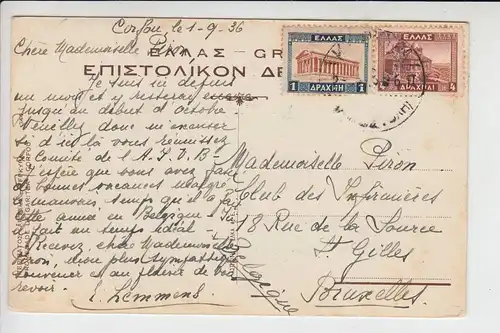 Corfou, le 1-9-36
Chère Mademoiselle Piron,
ΕΛΛΑΣ - GR
ΕΠΙΣΤΟΛΙΚΟΝ ΔΕ
Je suis ici depuis
un mois et y resterai encore
jusqu'au début d'octobre.
Veuillez donc m'excuser
si d'ici là vous réunissez
le Comité de l'A.F.V.B-
J'espère que vous avez fait
de bonnes vacances malgré
le mauvais temps qu'il a fait
cette année en Belgique. Ici
il fait un temps idéal.
Recevez chère Mademoiselle
Piron, mon plus sympathique
souvenir et au plaisir de vous
revoir.
E. Lemmens
ΕΛΛΑΣ
1 ΔΡΑΧΜΗ 1
ΕΛΛΑΣ
ΔΡΑΧΜΑΙ 4
Mademoiselle Piron
Club des Infirmières
18 Rue de la Source
St Gilles
Bruxelles
Belgique